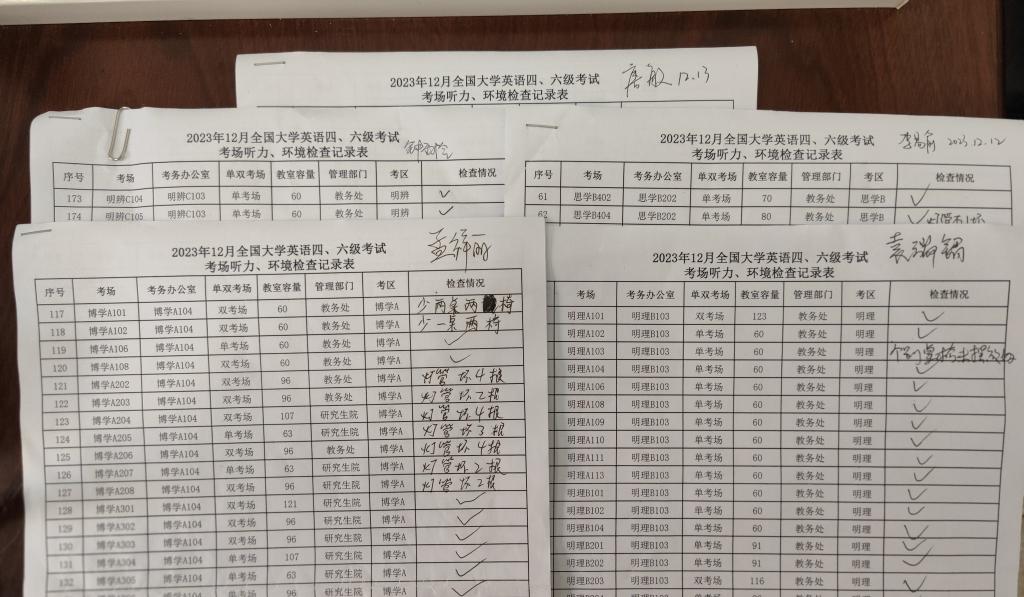 2023年12月全国大学英语四、六级考试
考场听力、环境检查记录表
唐敏 12.13
2023年12月全国大学英语四、六级考试
考场听力、环境检查记录表
序号 考场 考务办公室 单双考场 教室容量 管理部门 考区 检查情况
173 明辨C104 明辨C103 单考场 60 教务处 明辨 ✓
174 明辨C105 明辨C103 单考场 60 教务处 明辨 ✓
2023年12月全国大学英语四、六级考试
考场听力、环境检查记录表
2023.12.12
序号 考场 考务办公室 单双考场 教室容量 管理部门 考区 检查情况
61 思学B402 思学B202 单考场 70 教务处 思学B ✓
62 思学B404 思学B202 单考场 80 教务处 思学B ✓
2023年12月全国大学英语四、六级考试
考场听力、环境检查记录表
序号 考场 考务办公室 单双考场 教室容量 管理部门 考区 检查情况
117 博学A101 博学A104 双考场 60 教务处 博学A 少两桌两椅
118 博学A102 博学A104 双考场 60 教务处 博学A 少一桌两椅
119 博学A106 博学A104 单考场 60 教务处 博学A ✓
120 博学A108 博学A104 双考场 60 教务处 博学A ✓
121 博学A202 博学A104 双考场 96 教务处 博学A 灯管坏4根
122 博学A203 博学A104 双考场 96 教务处 博学A 灯管坏2根
123 博学A204 博学A104 双考场 107 研究生院 博学A 灯管坏4根
124 博学A205 博学A104 单考场 63 研究生院 博学A 灯管坏3根
125 博学A206 博学A104 双考场 96 教务处 博学A 灯管坏4根
126 博学A207 博学A104 单考场 63 研究生院 博学A 灯管坏2根
127 博学A208 博学A104 双考场 96 研究生院 博学A 灯管坏2根
128 博学A301 博学A104 双考场 121 研究生院 博学A ✓
129 博学A302 博学A104 双考场 96 研究生院 博学A ✓
130 博学A303 博学A104 双考场 96 研究生院 博学A ✓
131 博学A304 博学A104 单考场 107 研究生院 博学A ✓
132 博学A305 博学A104 单考场 63 研究生院 博学A ✓
2023年12月全国大学英语四、六级考试
考场听力、环境检查记录表
考场 考务办公室 单双考场 教室容量 管理部门 考区 检查情况
明理A101 明理B103 双考场 123 教务处 明理 ✓
明理A102 明理B103 单考场 60 教务处 明理 ✓
明理A103 明理B103 单考场 60 教务处 明理
明理A104 明理B103 单考场 60 教务处 明理 ✓
明理A106 明理B103 单考场 60 教务处 明理 ✓
明理A108 明理B103 单考场 60 教务处 明理 ✓
明理A109 明理B103 单考场 60 教务处 明理 ✓
明理A110 明理B103 单考场 60 教务处 明理 ✓
明理A111 明理B103 单考场 60 教务处 明理 ✓
明理A113 明理B103 单考场 60 教务处 明理 ✓
明理B101 明理B103 单考场 60 教务处 明理 ✓
明理B102 明理B103 单考场 60 教务处 明理 ✓
明理B104 明理B103 单考场 60 教务处 明理 ✓
明理B201 明理B103 单考场 91 教务处 明理 ✓
明理B202 明理B103 单考场 91 教务处 明理 ✓
明理B203 明理B103 双考场 116 教务处 明理 ✓